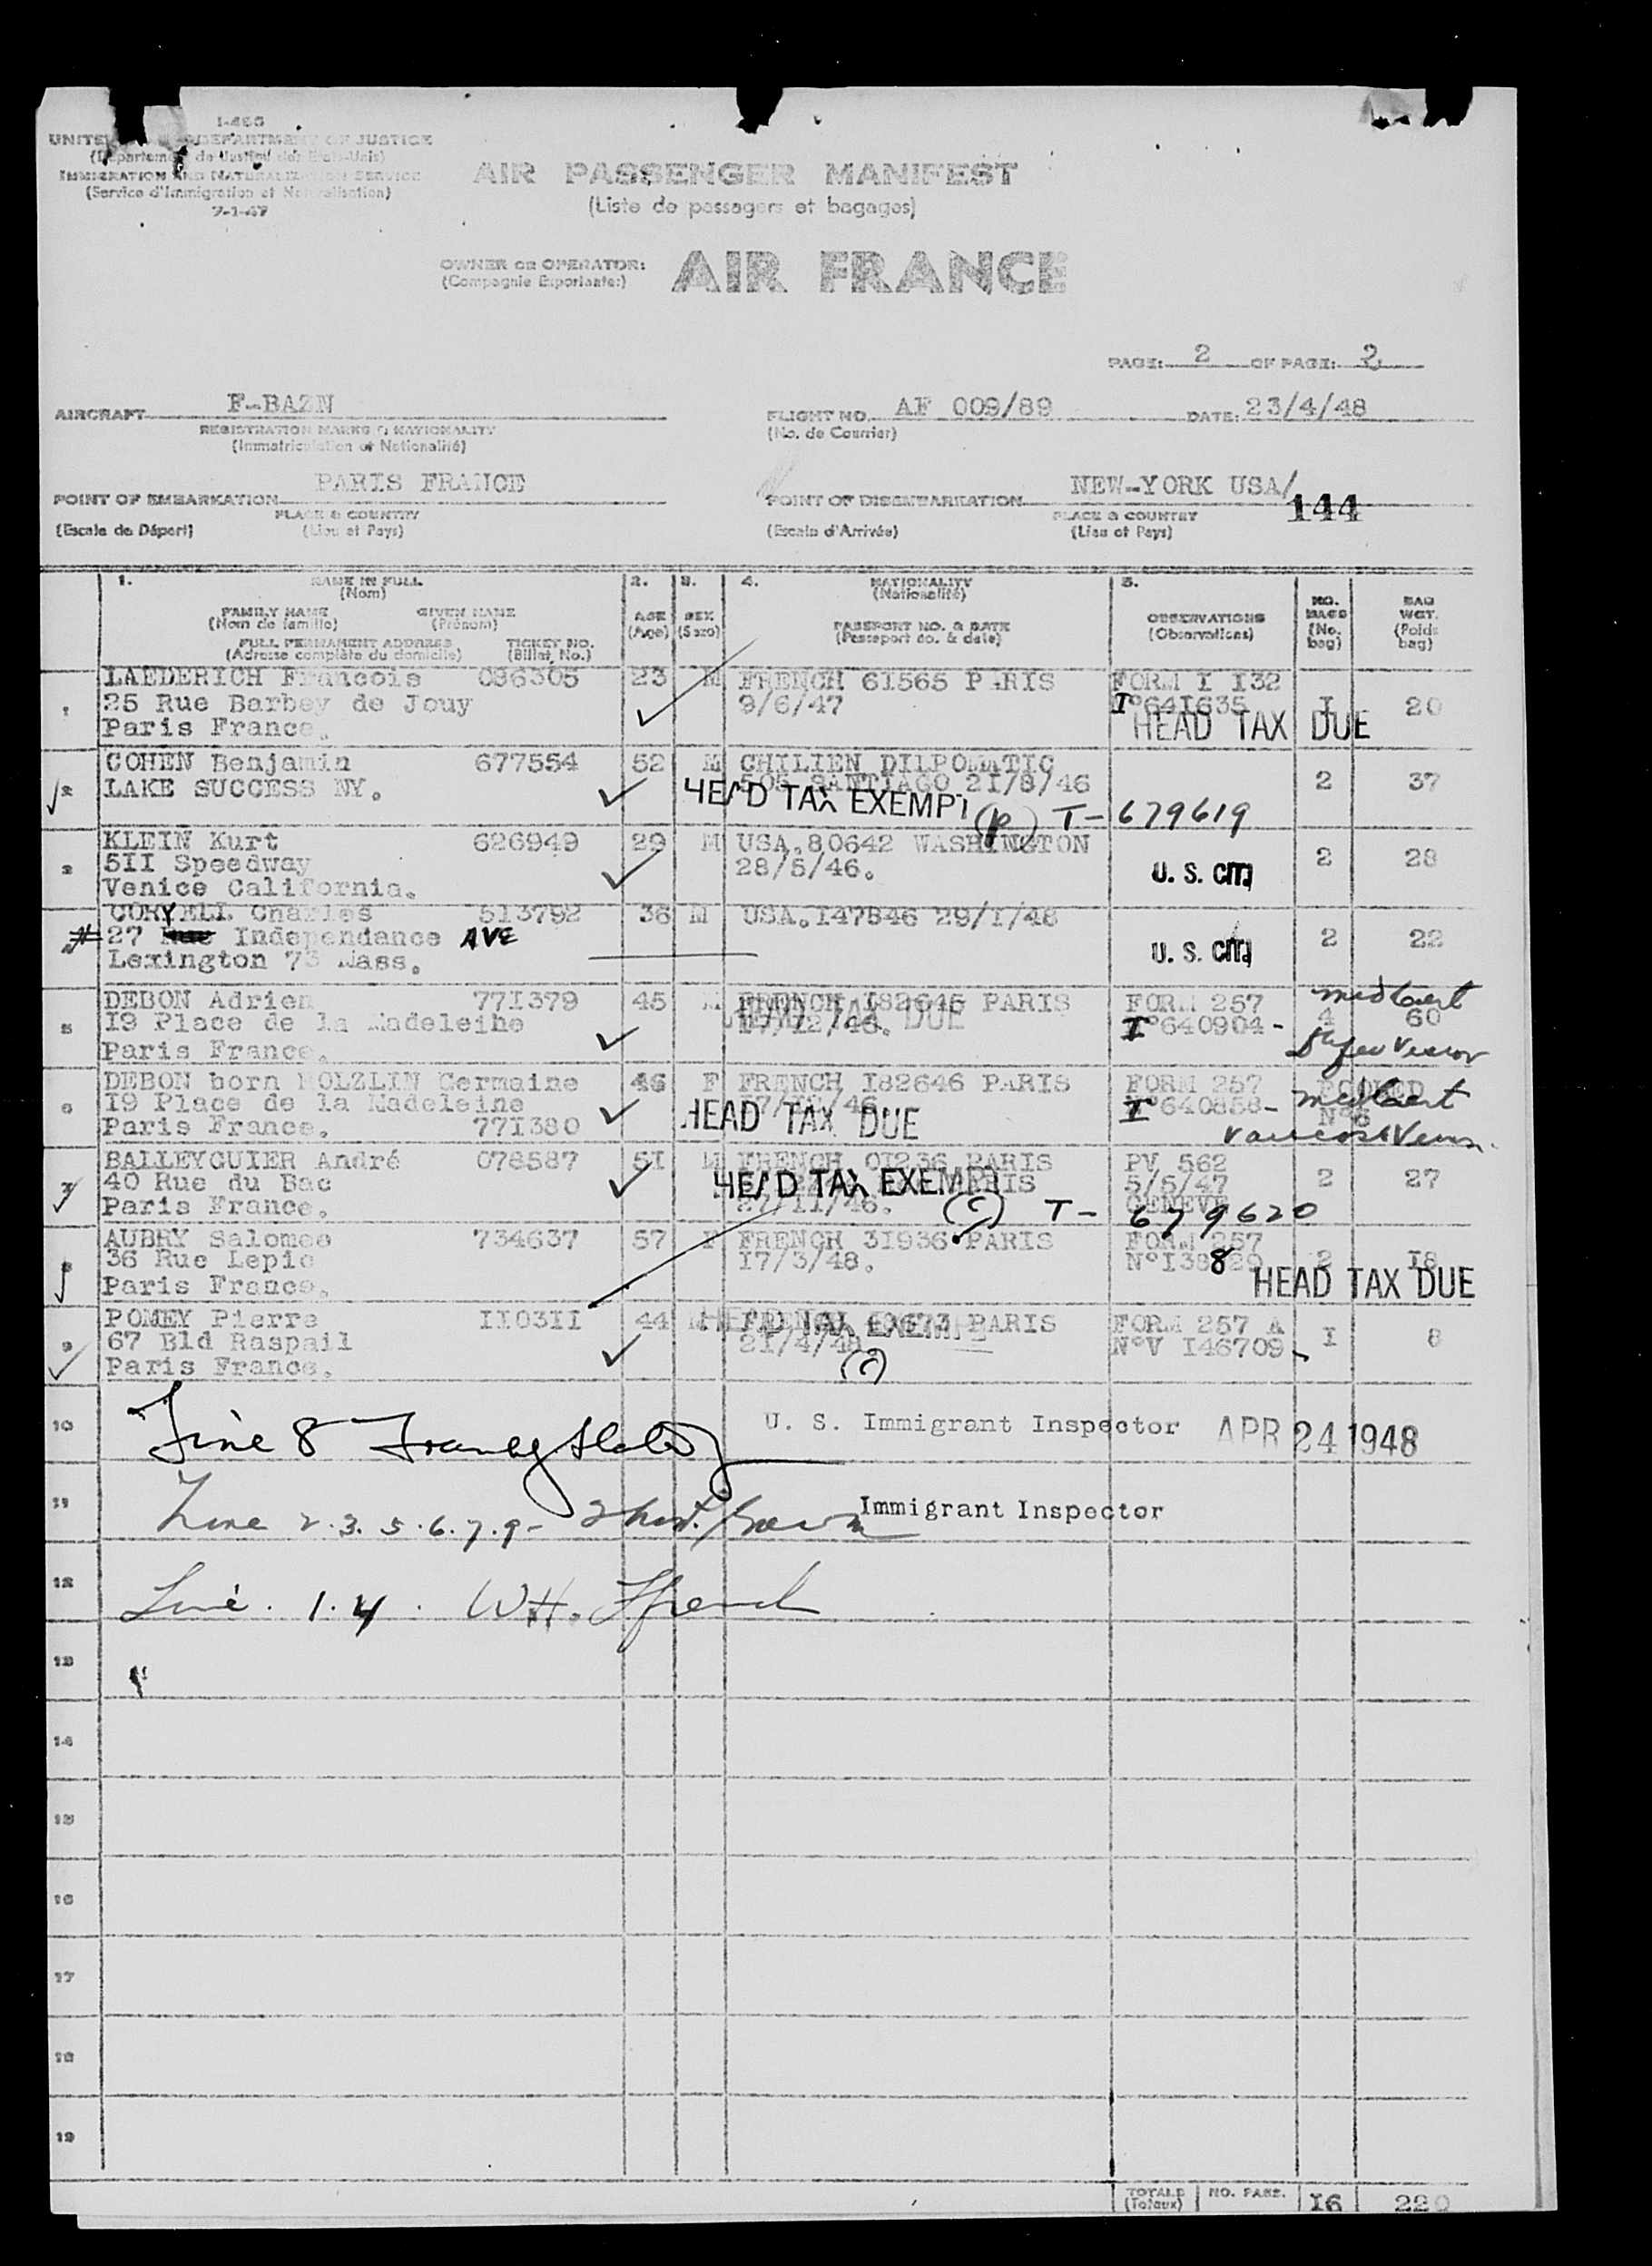 I-466
UNITED DEPARTMENT OF JUSTICE
(Département de Justice des Etats-Unis)
IMMIGRATION AND NATURALIZATION SERVICE
(Service d'Immigration et Naturalisation)
7-1-47
AIR PASSENGER MANIFEST
(Liste de passagers et bagages)
OWNER OR OPERATOR: AIR FRANCE
(Compagnie Exportante:)
PAGE: 2 OF PAGE: 2
AIRCRAFT F-BAZN
REGISTRATION MARKS & NATIONALITY
(Immatriculation et Nationalité)
FLIGHT NO. AF 009/89 DATE: 23/4/48
(No. de Courrier)
POINT OF EMBARKATION PARIS FRANCE
PLACE & COUNTRY
(Escale de Départ) (Lieu et Pays)
POINT OF DISEMBARKATION NEW-YORK USA/
144
PLACE & COUNTRY
(Escale d'Arrivée) (Lieu et Pays)
1. NAME IN FULL 2. 3. 4. NATIONALITY 5.
(Nom) (Nationalité)
FAMILY NAME GIVEN NAME AGE SEX PASSPORT NO. & DATE OBSERVATIONS NO. BAGS BAG WGT.
(Nom de famille) (Prénom) (Age) (Sexe) (Passeport no. & date) (Observations) (No. bag) (Poids bag)
FULL PERMANENT ADDRESS TICKET NO.
(Adresse complète du domicile) (Billet No.)
1 LAEDERICH Francois 086305 23 M FRENCH 61565 PARIS FORM I I32
25 Rue Barbey de Jouy 9/6/47 I°64I635 I 20
Paris France. HEAD TAX DUE
2 COHEN Benjamin 677554 52 M CHILIEN DILPOMATIC
LAKE SUCCESS NY. 505 SANTIAGO 2I/8/46 2 37
HEAD TAX EXEMPT (p) T-679619
3 KLEIN Kurt 626949 29 M USA.80642 WASHINGTON
5II Speedway 28/5/46. U. S. CIT. 2 28
Venice California.
4 CORYELL Charles 513792 36 M USA.I47846 29/I/48
# 27 Independance AVE U. S. CIT. 2 22
Lexington 73 Mass.
5 DEBON Adrien 77I379 45 M FRENCH I82645 PARIS FORM 257 med cert
I9 Place de la Madeleine I7/I2/46. HEAD TAX DUE I°640904- 4 60
Paris France.
6 DEBON born HOLZLIN Germaine 46 F FRENCH I82646 PARIS FORM 257
I9 Place de la Madeleine I°640858- med cert
Paris France. 77I380 HEAD TAX DUE N°5
7 BALLEYGUIER André 078587 5I M FRENCH 0I236 PARIS PV 562
40 Rue du Bac HEAD TAX EXEMPT 5/5/47 2 27
Paris France. 27/11/46. (c) T-679620 GENEVE
8 AUBRY Salomee 734637 57 F FRENCH 3I936 PARIS FORM 257
36 Rue Lepic I7/3/48. N°I38829 2 I8
Paris France. HEAD TAX DUE
9 POMEY Pierre II03II 44 M FRENCH 49673 PARIS FORM 257 A
67 Bld Raspail 2I/4/48. HEAD TAX EXEMPT N°V I46709 I 8
Paris France. (c)
10 Line 8 U. S. Immigrant Inspector APR 24 1948
11 Line 2.3.5.6.7.9- Immigrant Inspector
12 Line. 1.4. W.H. Ffrench
13
14
15
16
17
18
19
TOTALS NO. PASS. I6 220
(Totaux)